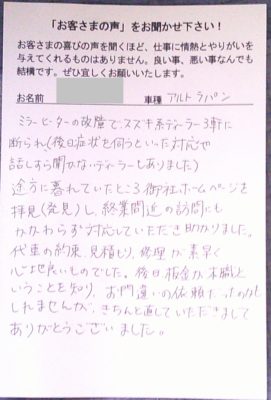 「お客さまの声」をお聞かせ下さい！
お客さまの喜びの声を聞くほど、仕事に情熱とやりがいを
与えてくれるものはありません。良い事、悪い事なんでも
結構です。ぜひ宜しくお願いいたします。
お名前 車種 アルトラパン
ミラーヒーターの故障で、スズキ系ディーラー3軒に
断られ、(後日症状を伺うといった対応や
話しすら聞かないディーラーもありました)
途方に暮れていたところ御社ホームページを
拝見(発見)し、終業間近の訪問にも
かかわらず対応していただき助かりました。
代車の約束、見積もり、修理が素早く
心地良いものでした。後日板金が本職と
いうことを知り、お門違いの依頼だったかも
しれませんが、きちんと直していただきまして
ありがとうございました。